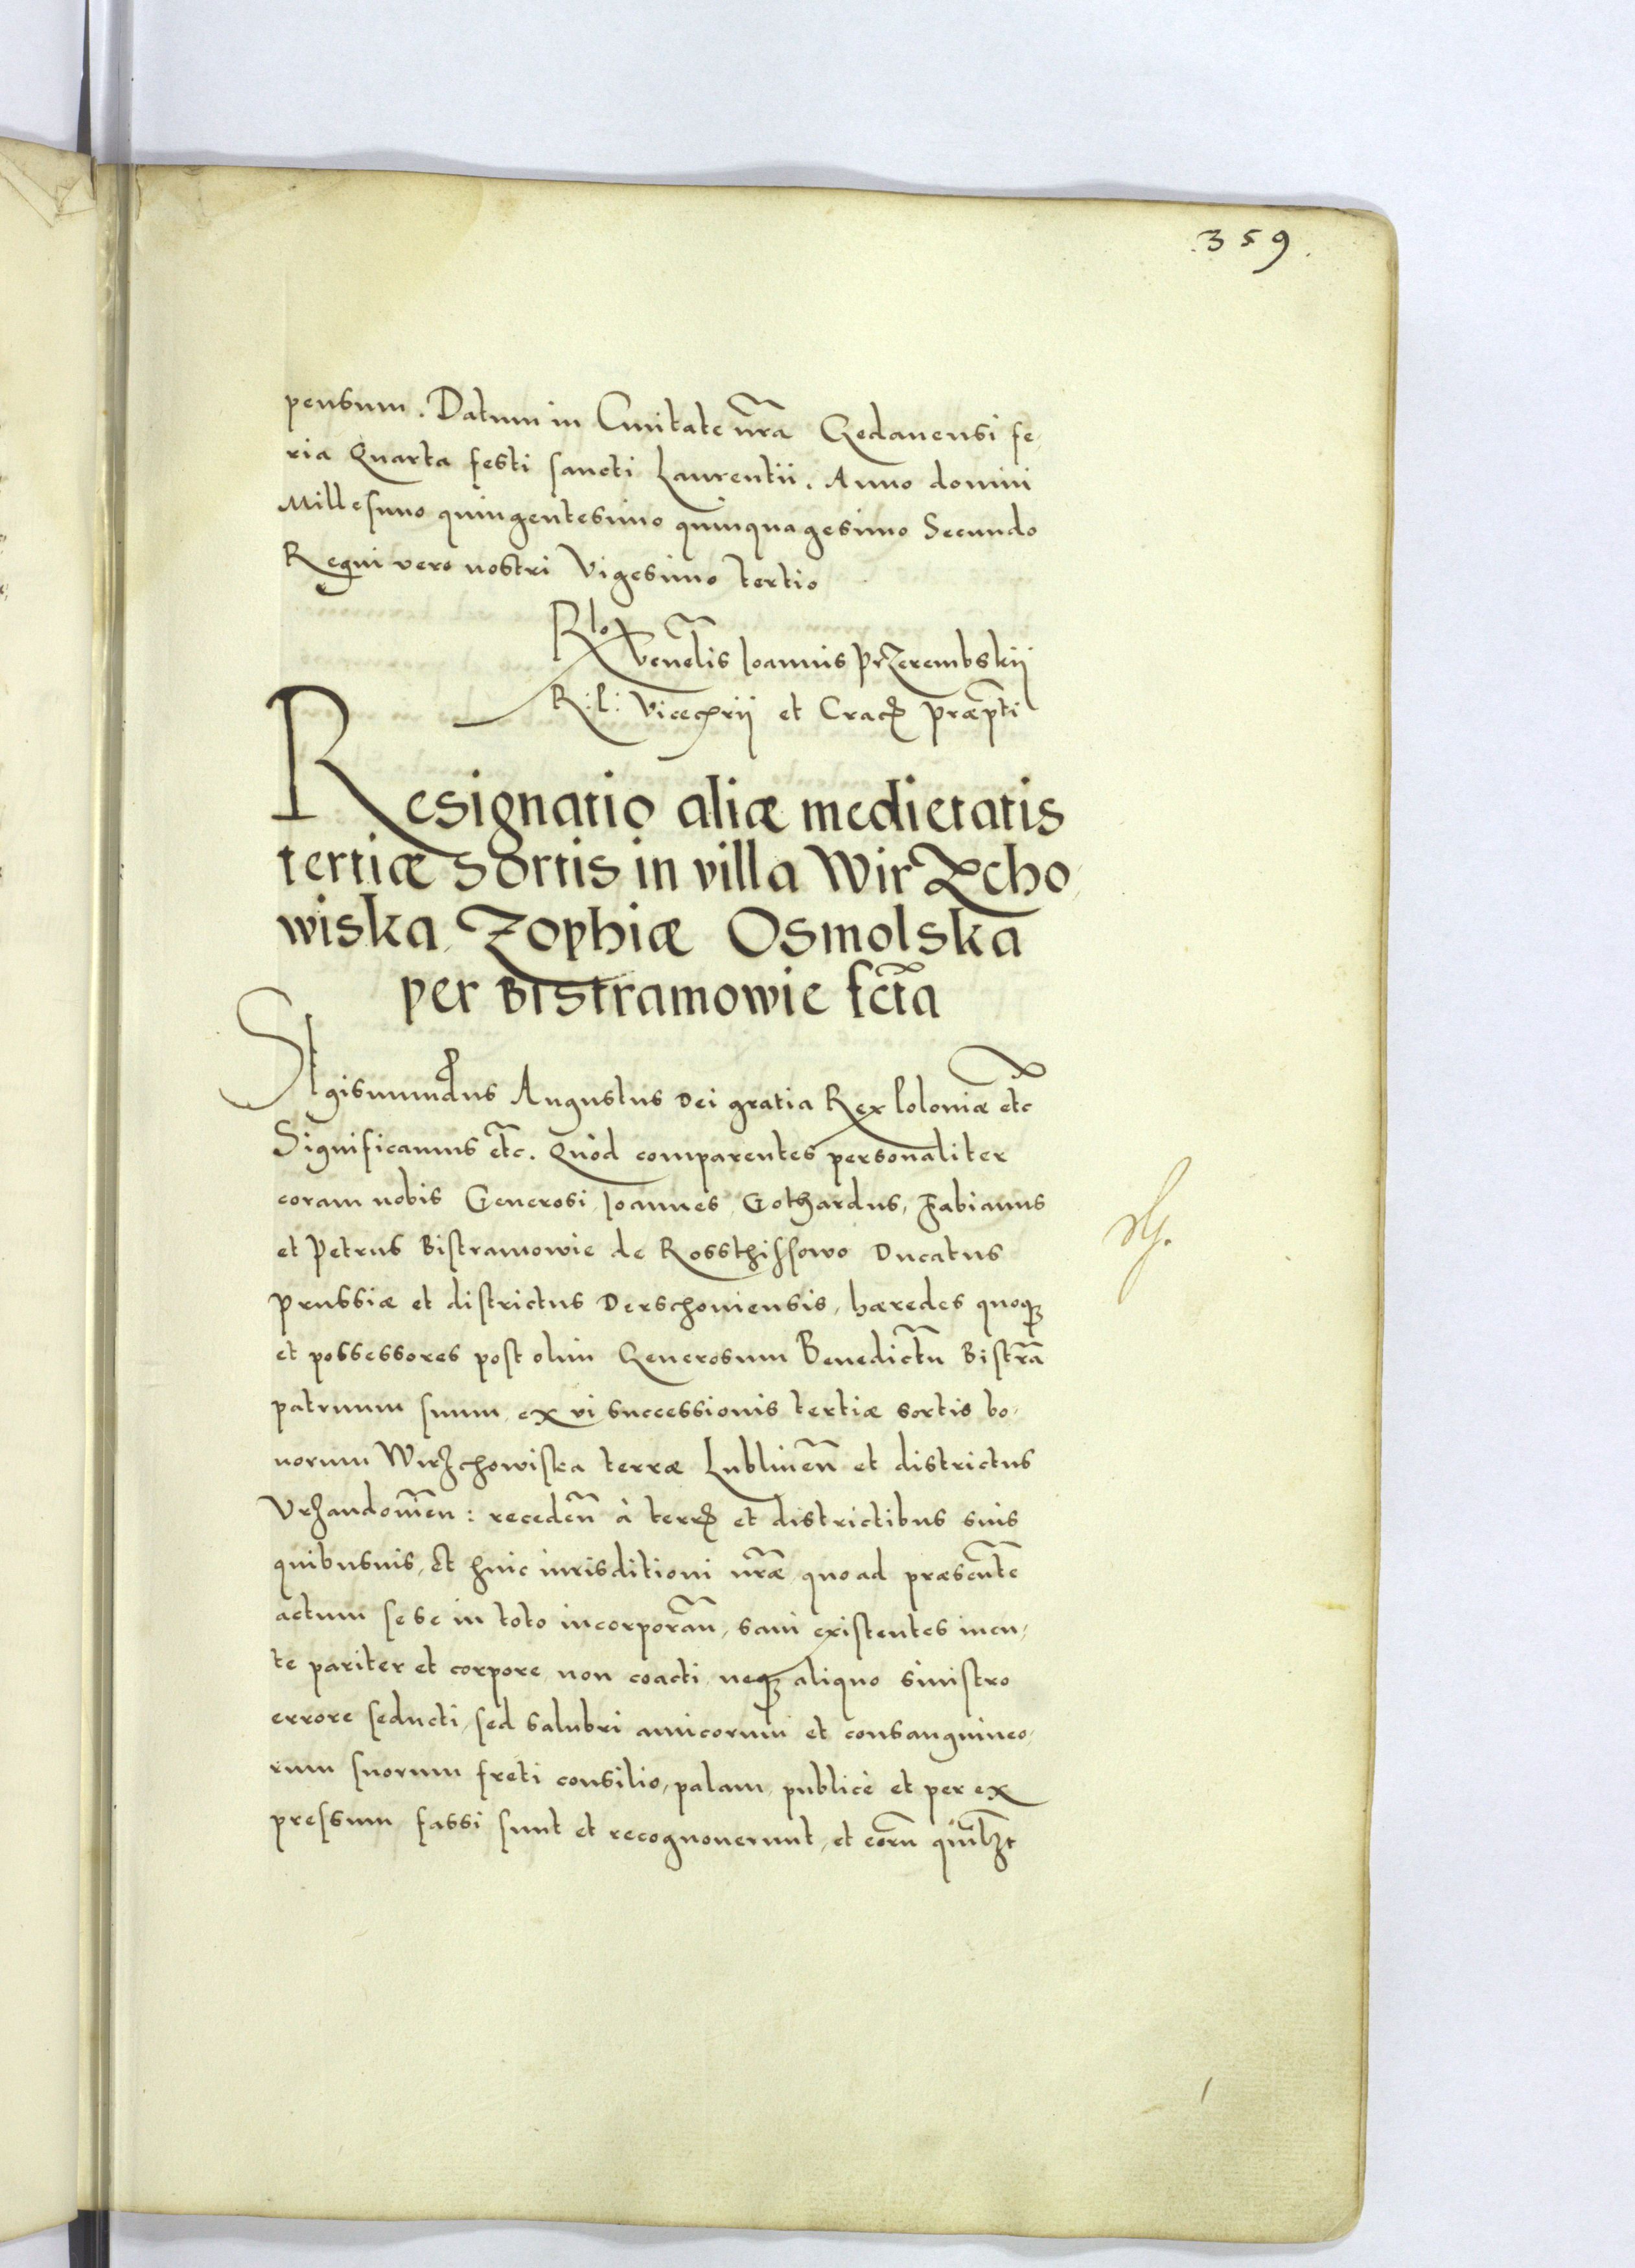 .359.
pensum. Datum in Ciuitate nr̃a Gedanensi fe,
ria Quarta festi sancti Laurentii. Anno domini
Millesimo quingentesimo quinquagesimo Secundo
Regni vero nostri Vigesimo tertio
Rlo
Venelis Ioannis Przerembskij
R: P: Vicecãrij et Crac præpti
Resignatio aliæ medietatis
tertiæ sortis in villa Wirzcho,
wiska, Zophiæ Osmolska
per Bistramowie fcta
Sigismundus Augustus Dei gratia Rex Poloniæ etc
Significamus etc. Quòd comparentes personaliter
coram nobis Generosi, Ioannes, Gothardus, Fabianus
et Petrus Bistramowie de Rossthissowo Ducatus
Prussiæ et districtus Derschouiensis, hæredes quoq;
et possessores post olim Generosum Benedictũ Bistrã
patruum suum, ex vi successionis tertiæ sortis bo,
norum Wirzchowiska terræ Lublineñ et districtus
Vrzandomeñ: recedeñ à terr et districtibus suis
quibusuis, et huic iurisditioni nr̃æ, quo ad præsente
actum sese in toto incorporañ, sani existentes men,
te pariter et corpore, non coacti, neq; aliquo sinistro
errore seducti, sed salubri amicorum et consanguineo,
rum suorum freti consilio, palam, publicè et per ex
pressum fassi sunt et recognouerunt, et eorũ quilzt